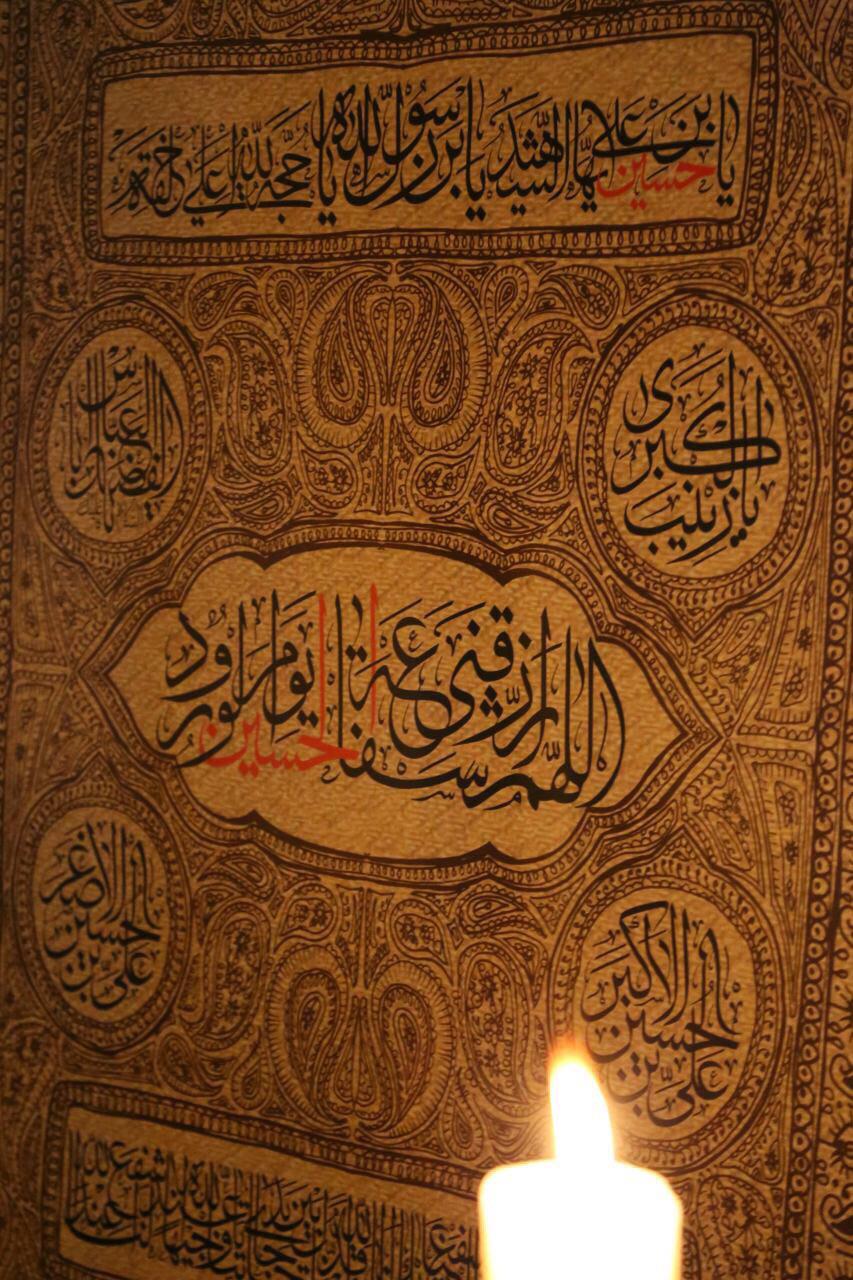 یا حسین بن علی ایها الشهید یابن رسول الله یا حجة الله علی خلقه
یا زینب الکبری
یا ابالفضل العباس
اللهم ارزقنی شفاعة الحسین یوم الورود
علی بن الحسین الاکبر
علی بن الحسین الاصغر